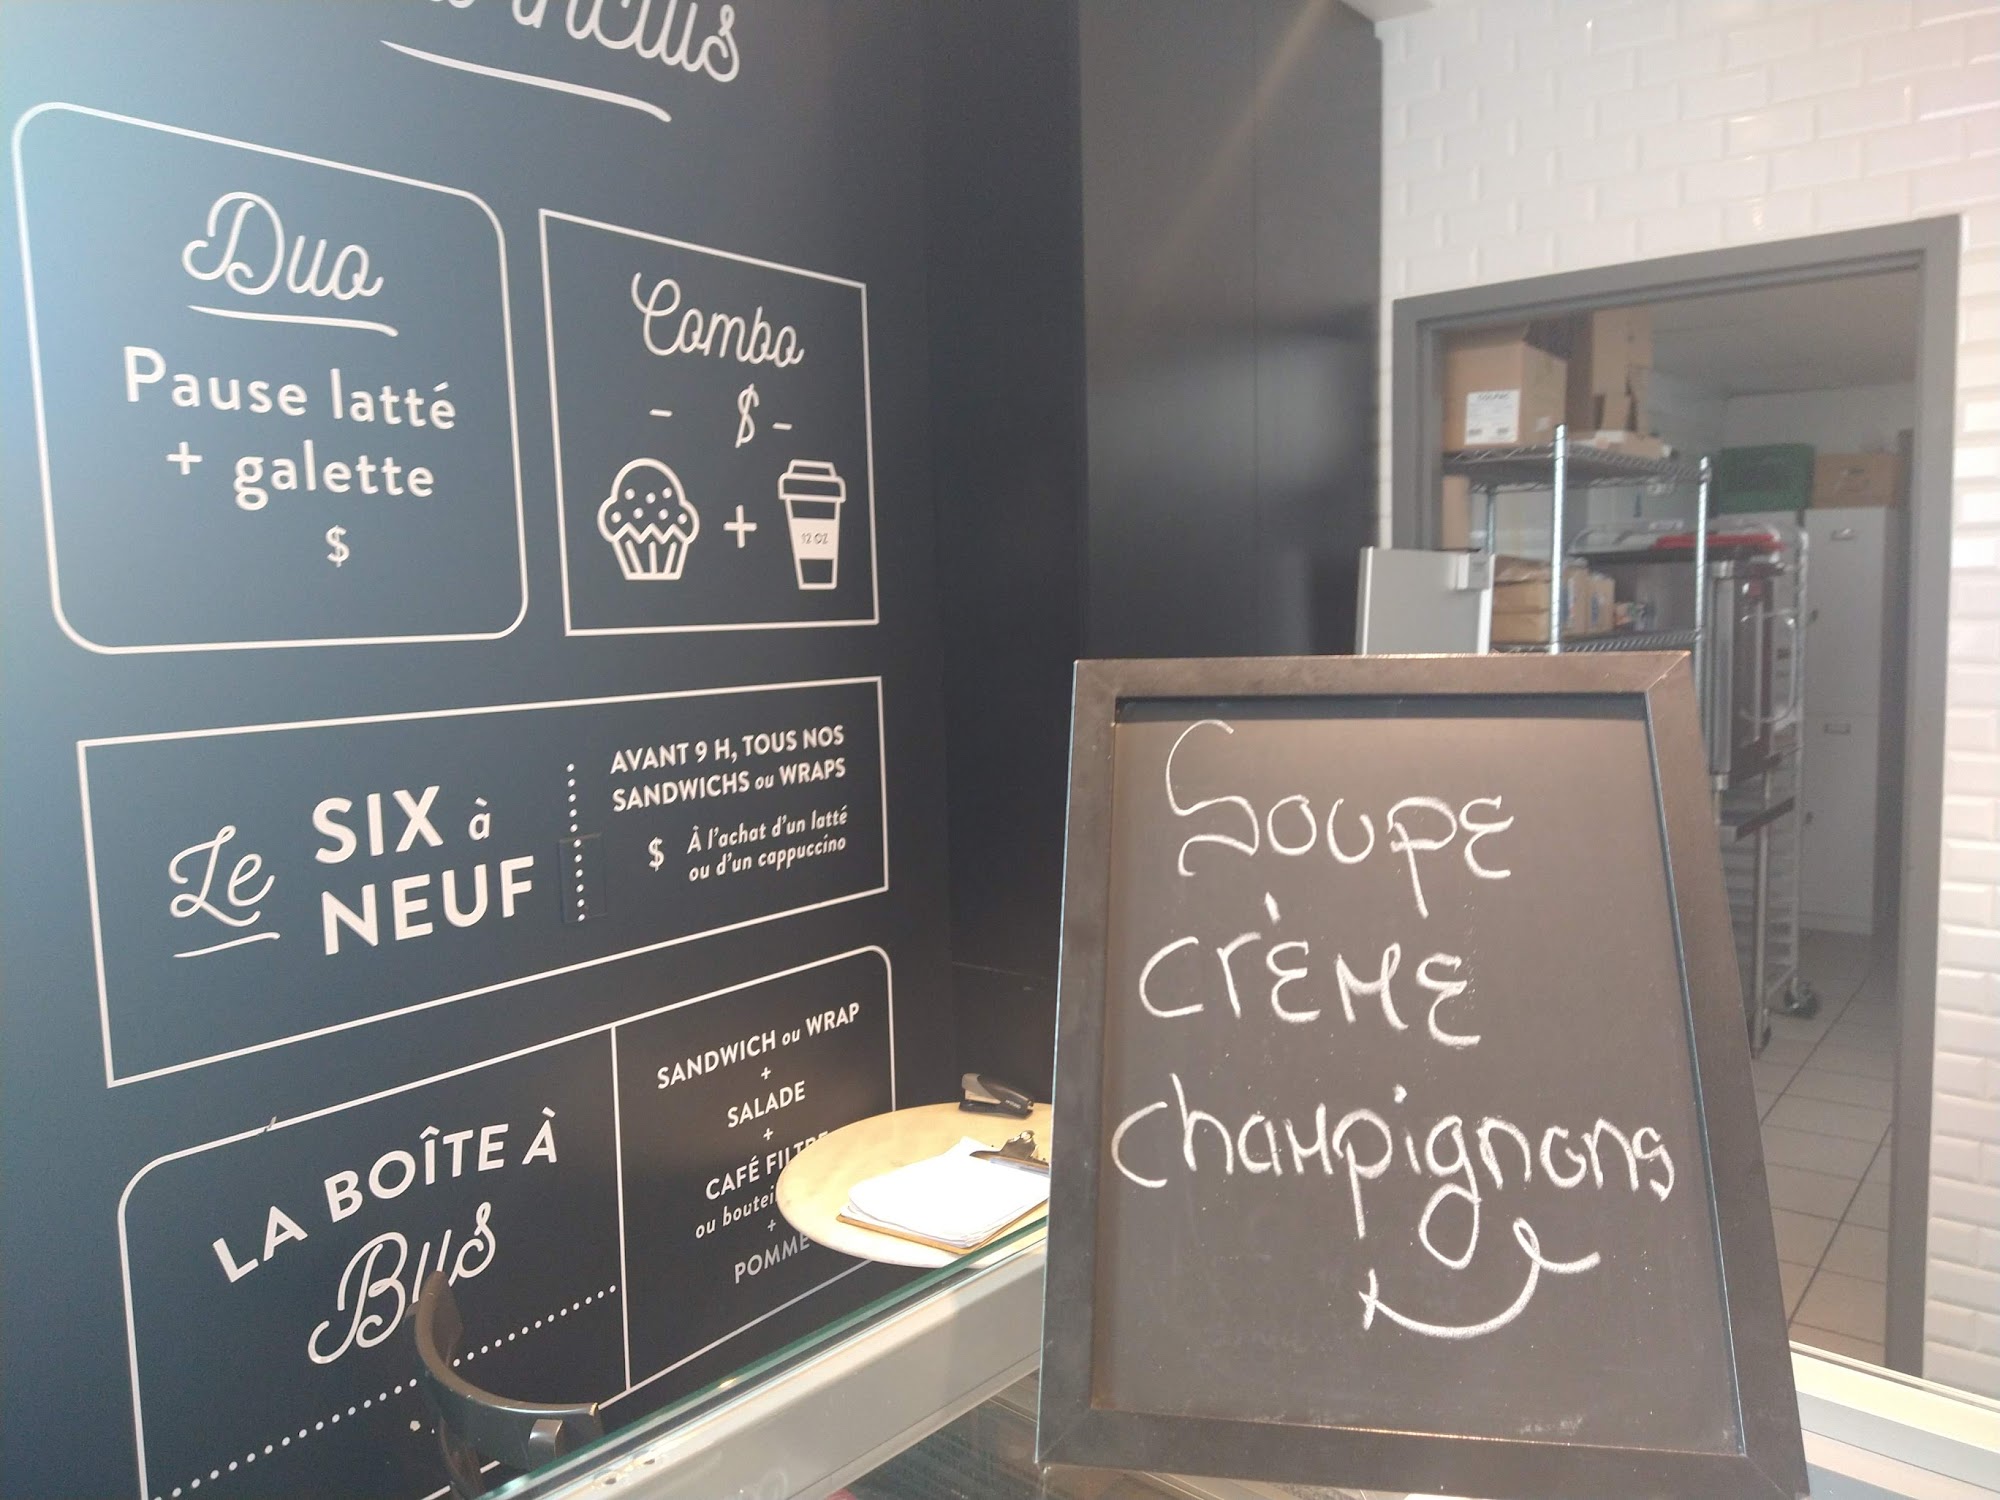 Duo
Pause latté
+ galette
$
Combo
- $ -
+
12 OZ
Le SIX à
NEUF
AVANT 9 H, TOUS NOS
SANDWICHS ou WRAPS
$ À l'achat d'un latté
ou d'un cappuccino
LA BOÎTE À
Bus
SANDWICH ou WRAP
+
SALADE
+
CAFÉ FILTRE
ou
+
POMME
Soupe
crème
champignons